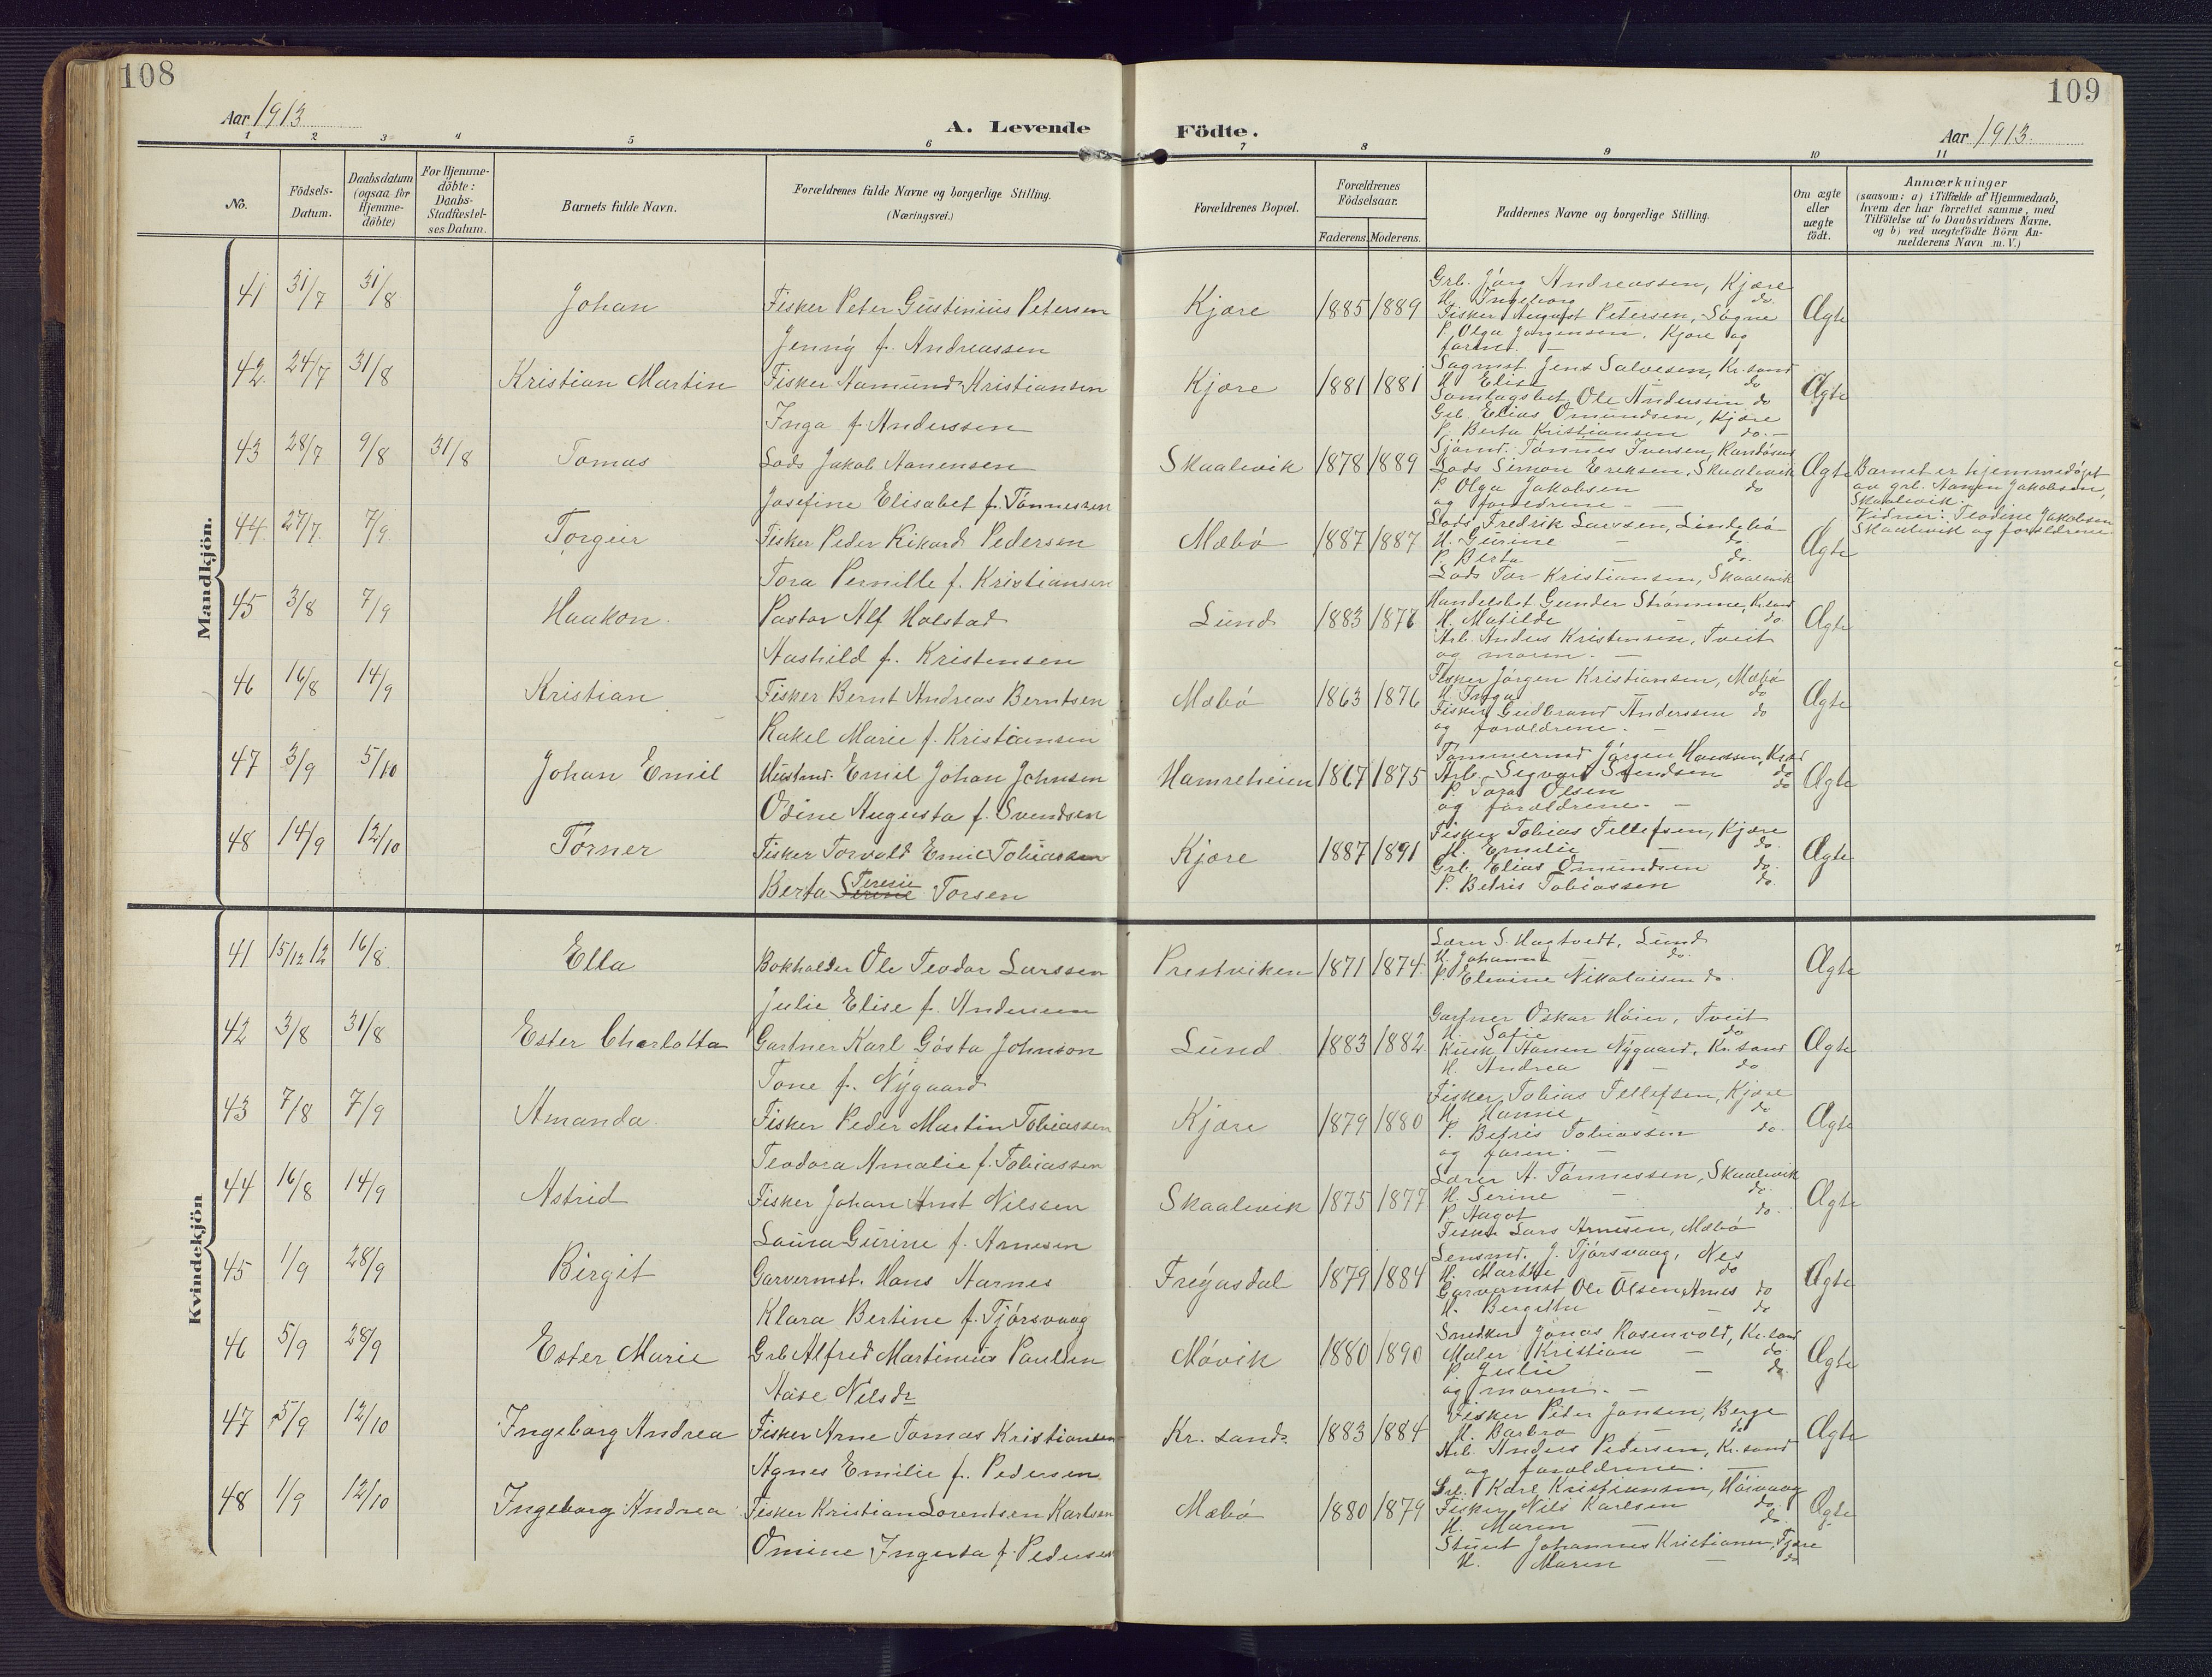 108
109
Aar 1913
A. Levende Födte.
Aar 1913.
1 2 3 4 5 6 7 8 9 10 11
No.
Födsels-Datum.
Daabsdatum (ogsaa for Hjemme-döbte)
For Hjemme-döbte: Daabs-Stadfæstel-ses Datum.
Barnets fulde Navn.
Forældrenes fulde Navne og borgerlige Stilling. (Næringsvei.)
Forældrenes Bopæl.
Forældrenes Födselsaar.
Faderens. Moderens.
Faddernes Navne og borgerlige Stilling.
Om ægte eller uægte födt.
Anmærkninger
(saasom: a) i Tilfælde af Hjemmedaab, hvem der har forrettet samme, med Tilföielse af to Daabsvidners Navne, og b) ved uægtefödte Börn An-melderens Navn m. V.)
Mandkjön.
41 31/7 31/8 Johan Fisker Peter Gustinius Petersen Kjære 1885 1889 Ægte
Jenny f. Andreassen
Grb. Jörg Andreassen, Kjære
H. Ingeborg do.
Fisker August Petersen, Søgne
P. Olga Jørgensen, Kjære og
farmor. —
42. 24/7 31/8 Kristian Martin Fisker Aamund Kristiansen Kjære 1881 1881 Ægte
Inga f. Anderssen
Sagmst. Jens Salvesen, Kr.sand
H. Elise do
Ole Anderssen do
Grb. Elias Omundsen, Kjære
P. Berta Kristiansen do. —
43 28/7 9/8 31/8 Tomas Lods Jakob Hanensen Skaalevik 1878 1889 Ægte
Josefine Elisabet f. Tønnessen
Sjömd. Tønnes Iversen, Randøsund
Lods Simon Eriksen, Skaalevik
P. Olga Jakobsen do
og forældrene —
Barnet er hjemmedøpt
av grb. Hanen Jakobsen,
Skaalevik.
Vidner: Teodine Jakobsen
Skaalevik og forældrene
44. 27/7 7/9 Torgeir Fisker Peder Rikard Pedersen Mæbø 1887 1887 Ægte
Tora Pernille f. Kristiansen
Lods Fredrik Larssen, Lindebø
H. Gurine — do
P. Berta — do.
Lods Tor Kristiansen, Skaalevik
45 3/8 7/9 Haakon. Pastor Alf Halstad Lund 1883 1876 Ægte
Aashild f. Kristensen
Handelsbet. Gunder Strømme, Kr.sand
H. Matilde — do.
Arb. Anders Kristensen, Tveit
og moren. —
46 16/8 14/9 Kristian Fisker Bernt Andreas Berntsen Mæbø 1863 1876 Ægte
Rakel Marie f. Kristiansen
Fisker Jørgen Kristiansen, Mæbø
H. Inga do
Fisker Gudbrand Anderssen do
og forældrene. —
47 3/9 5/10 Johan Emil Husmd. Emil Johan Johnsen Hamreheien 1867 1875 Ægte
Odine Augusta f. Svendsen
Tømmermd. Jørgen Hanssen, Kr.sd
Arb. Sigvart Svendsen do
P. Olsen do
og forældrene. —
48 14/9 12/10 Tørner Fisker Torvald Emil Tobiassen Kjære 1887 1891 Ægte
Berta Serine Teresie Torsen
Fisker Tobias Tellefsen, Kjære
H. Emilie do.
Grb. Elias Omundsen do.
P. Betris Tobiassen do.
Kvindekjön
41 15/12 12 16/8. Ella Bokholder Ole Teodor Larssen Prestviken 1871 1874 Ægte
Julie Elise f. Andersen
Lærer S. Hagtvedt, Lund
H. Johanne do.
P. Elevine Nikolaisen do.
42 3/8 31/8 Ester Charlotta Gartner Karl Gösta Johnson Lund 1883 1882 Ægte
Tone f. Nygaard
Gartner Oskar Høier, Tveit
H. Sofie do
Kusk Hanen Nygaard, Kr.sand
H. Andrea — do
43 7/8 7/9 Amanda Fisker Peder Martin Tobiassen Kjære 1879 1880 Ægte
Teodora Amalie f. Tobiassen
Fisker Tobias Tellefsen, Kjære
H. Hanne — do
P. Betris Tobiassen do.
og faren. —
44 16/8 14/9 Astrid Fisker Johan Arnt Nilssen Skaalevik 1875 1877 Ægte
Laura Gurine f. Arnesen
Lærer A. Tønnessen, Skaalevik
H. Serine — do.
P. Aagot — do.
Fisker Lars Arnesen, Mæbø
45 1/9 28/9 Birgit Garvermst. Hans Aarnes Frøyasdal 1879 1884 Ægte
Klara Bertine f. Tjørsvaag
Lensmd. J. Tjørsvaag, Nes
H. Marthe do
Garvermst Ole Olsen Arnes do
H. Bergitte — do
46 5/9 28/9 Ester Marie Grb Alfred Martinius Paulsen Møvik 1880 1890 Ægte
Aase Nilsdr
Snedker Jonas Rosenvold, Kr.sand
Maler Kristian — do.
P. Julie — do.
og moren. —
47 5/9 12/10 Ingeborg Andrea Fisker Arne Tomas Kristiansen Kr. sand. 1883 1884 Ægte
Agnes Emilie f. Pedersen
Fisker Peter Jansen, Berge
H. Barbro — do
Arb. Anders Pedersen, Kr.sand
og forældrene. —
48 1/9 12/10 Ingeborg Andrea Fisker Kristian Lorentsen Karlsen Mæbø 1880 1879 Ægte
Omine Ingerta f. Pedersen
Grb. Karl Kristiansen, Høivaag
Fisker Nils Karlsen do.
H. Maren — do.
Johannes Kristiansen,
H. Maren — do